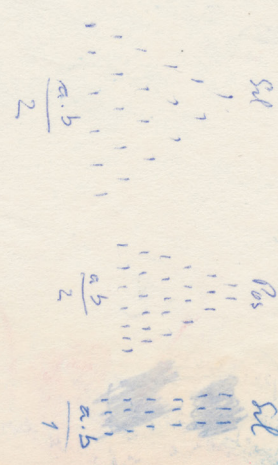 Sel
a.b
2
Pos
ab
2
Sel
a.b
1